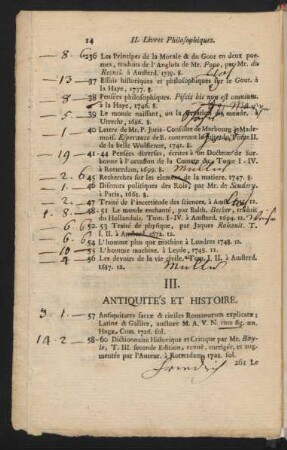 14 II. Livres Philosophiques.
— 8 - 636 Les Principes de la Morale & du Gout en deux poe-
mes, traduits de l'Anglois de Mr. Pope, par Mr. du
Resnel. à Amsterd. 1739. 8.
— 13 - 37 Essais historiques et philosophiques sur le Gout. à
la Haye, 1737. 8.
— 8 - 38 Pensées philosophiques. Piscis hic non est omnium.
à la Haye, 1746. 8.
— 5 - 39 Le monde naissant, ou la création du monde. à
Utrecht, 1686. 8.
— 1 - 40 Lettre de Mr. P. Juris-Consulte de Marbourg à Ma-
demois. Esperance de B. concernant le Tome II.
de la belle Wolfienne, 1741. 8.
— 19 - 41-44 Pensées diverses, écrites à un Docteur de Sor-
bonne à l'occasion de la Comete Tom. I-IV.
à Rotterdam, 1699. 8. Muller
— 2. 645 Recherches sur les elemens de la matiere. 1747. 8.
— 1 - 46 Discours politiques des Rois, par Mr. de Scudery.
à Paris, 1663. 8.
— 2 - 47 Traité de l'incertitude des sciences, à Amsterd. 12.
1. 8 - 48-51 Le monde enchanté, par Balth. Becker, traduit
du Hollandois, Tom. I-IV. à Amsterd. 1694. 12.
— 6. 652 53 Traité de physique, par Jaques Rohault. T.
I. II. à Amsterd. 1672. 12.
— 6 - 654 L'homme plus que machine à Londres 1748. 12.
— 10 - 55 L'homme machine. à Leyde, 1748. 12.
— 4 - 56 Les devoirs de la vie civile, Tom. I. II à Amsterd.
1687. 12. Muller
III.
ANTIQUITE'S ET HISTOIRE.
3. 1. - 57 Antiquitates sacræ & civiles Romanorum explicatæ;
Latine & Gallice, auctore M. A. V. N. cum fig. æn.
Hagæ. Com. 1726. fol.
14. 2 - 58-60 Dictionnaire Historique et Critique par Mr. Bay-
le, T. III. seconde Edition, revue, corrigée, et aug-
mentée par l'Auteur. à Rotterdam 1702. fol.
Friedrich 261 Le